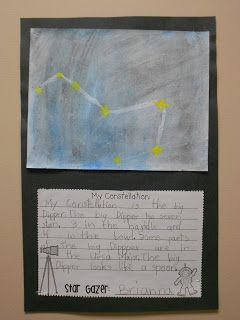 My Constellation:
My Constellation is the big
Dipper. The big Dipper has seven
stars. 3 in the handle and
4 in the bowl. Some parts
of the big Dippper are in
the Ursa Major. The big
Dipper looks like a spoon.
Star Gazer: Brianna